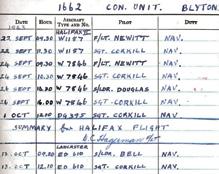 1662 CON. UNIT. BLYTON
DATE HOUR AIRCRAFT TYPE AND NO. PILOT DUTY
HALIFAX II
22 SEPT 09.30 W1187 F/LT. NEWITT NAV.
22 SEPT 11.30 W1187 SGT. CORKILL NAV.
24 SEPT 09.30 W.7846 F/LT. NEWITT NAV.
24 SEPT 10.30 W.7846 SGT. CORKILL NAV.
26 SEPT W.7846 S/LDR. DOUGLAS NAV.
26 SEPT 16.00 W.7846 SGT. CORKILL NAV.
1 OCT SGT. CORKILL NAV.
SUMMARY for HALIFAX FLIGHT
LANCASTER
13. OCT ED 610 S/LDR. BELL NAV.
13. OCT ED 610 SGT. CORKILL NAV.